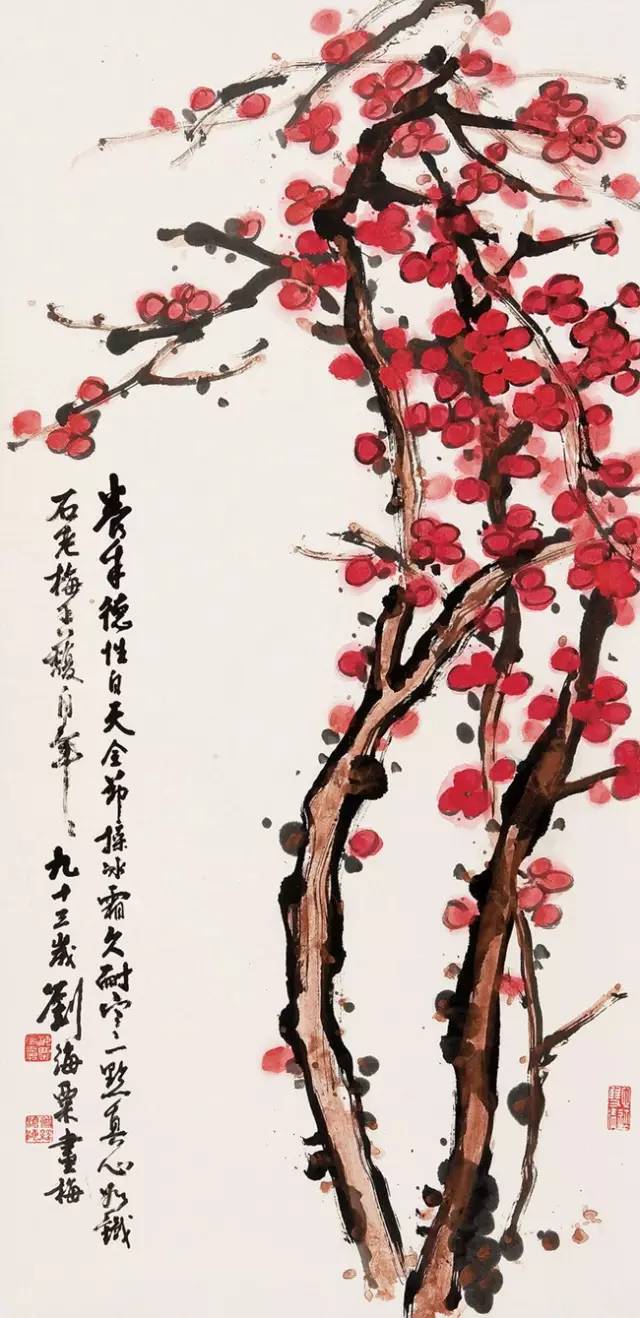 養德性自天全節操冰霜久耐寒一點真心如鐵
石老梅香馥自年々九十三歲劉海粟畫梅